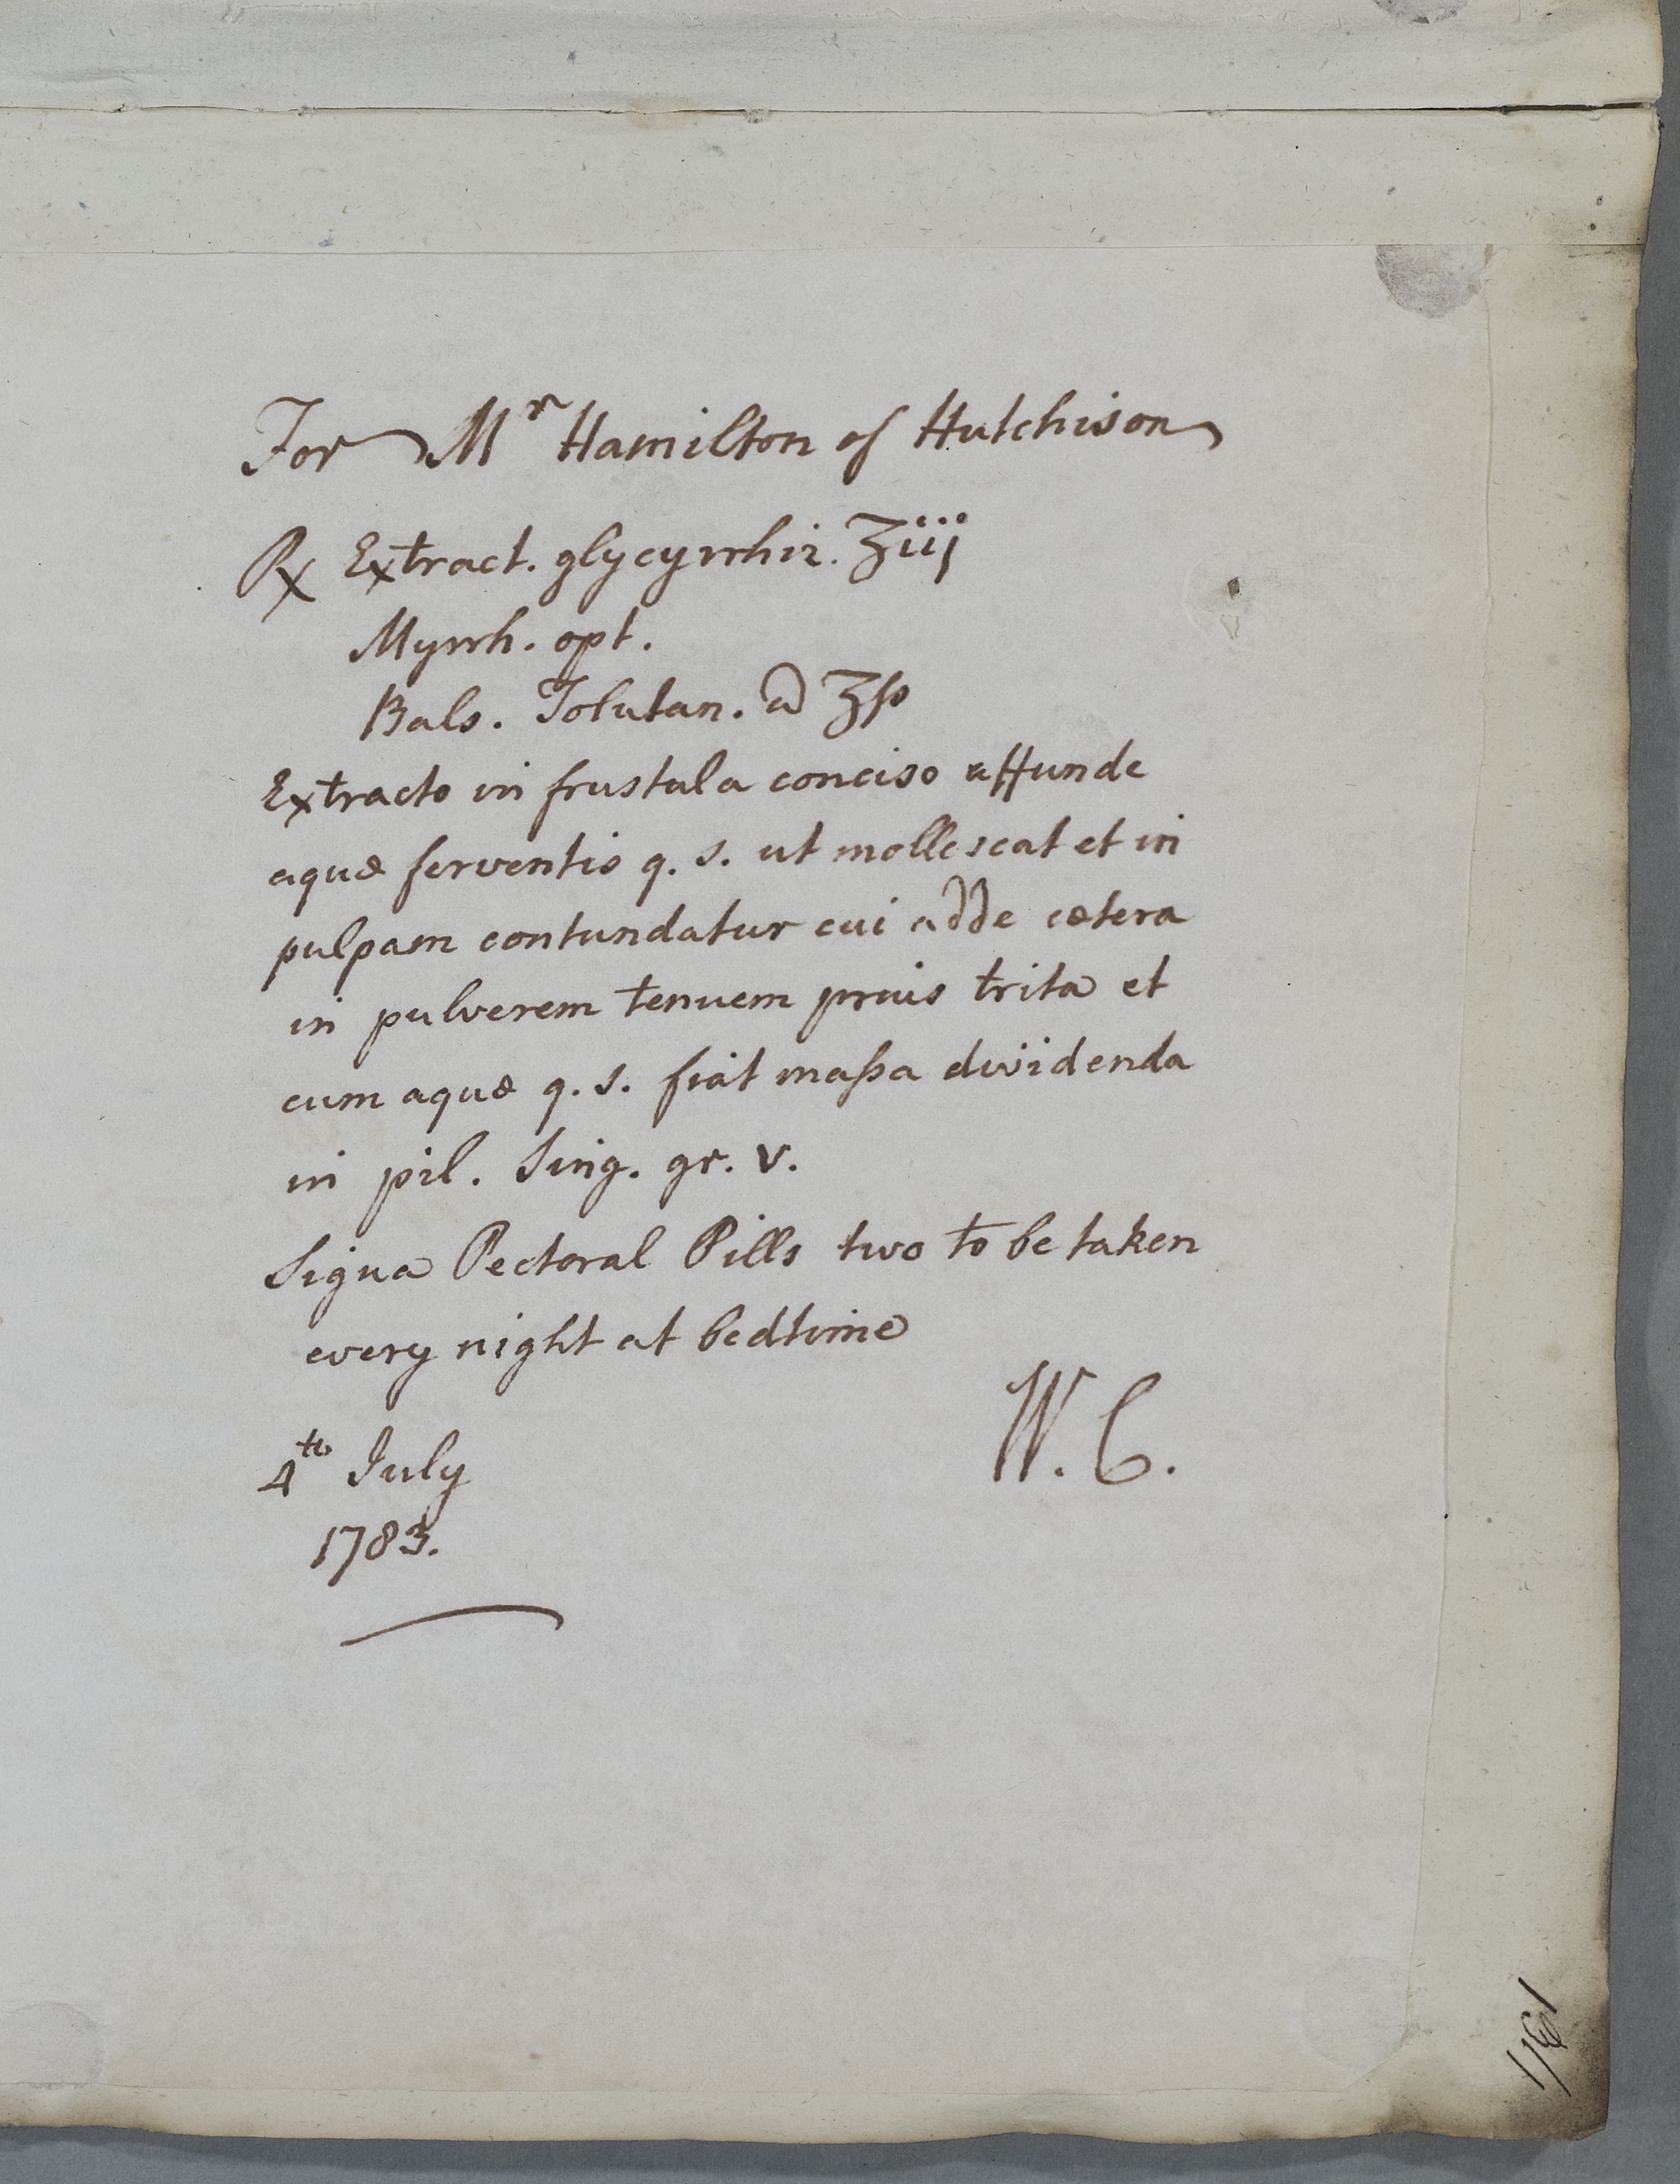 For Mr Hamilton of Hutchison
℞ Extract. glycyrrhiz. ʒiij
Myrrh. opt.
Bals. Tolutan. a ʒſs
Extracto in frustula conciso affunde
aquæ ferventis q. s. ut mollescat et in
pulpam contundatur cui adde cætera
in pulverem tenuem prius trita et
cum aquæ q. s. fiat maſsa dividenda
in pil. Sing. gr. v.
Signa Pectoral Pills two to be taken
every night at bedtime
W. C.
4th July
1783.